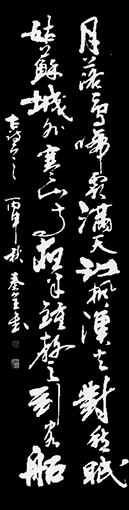 月落烏啼霜滿天江楓漁火對愁眠
姑蘇城外寒山寺夜半鐘聲到客船
古詩一首 丙申秋